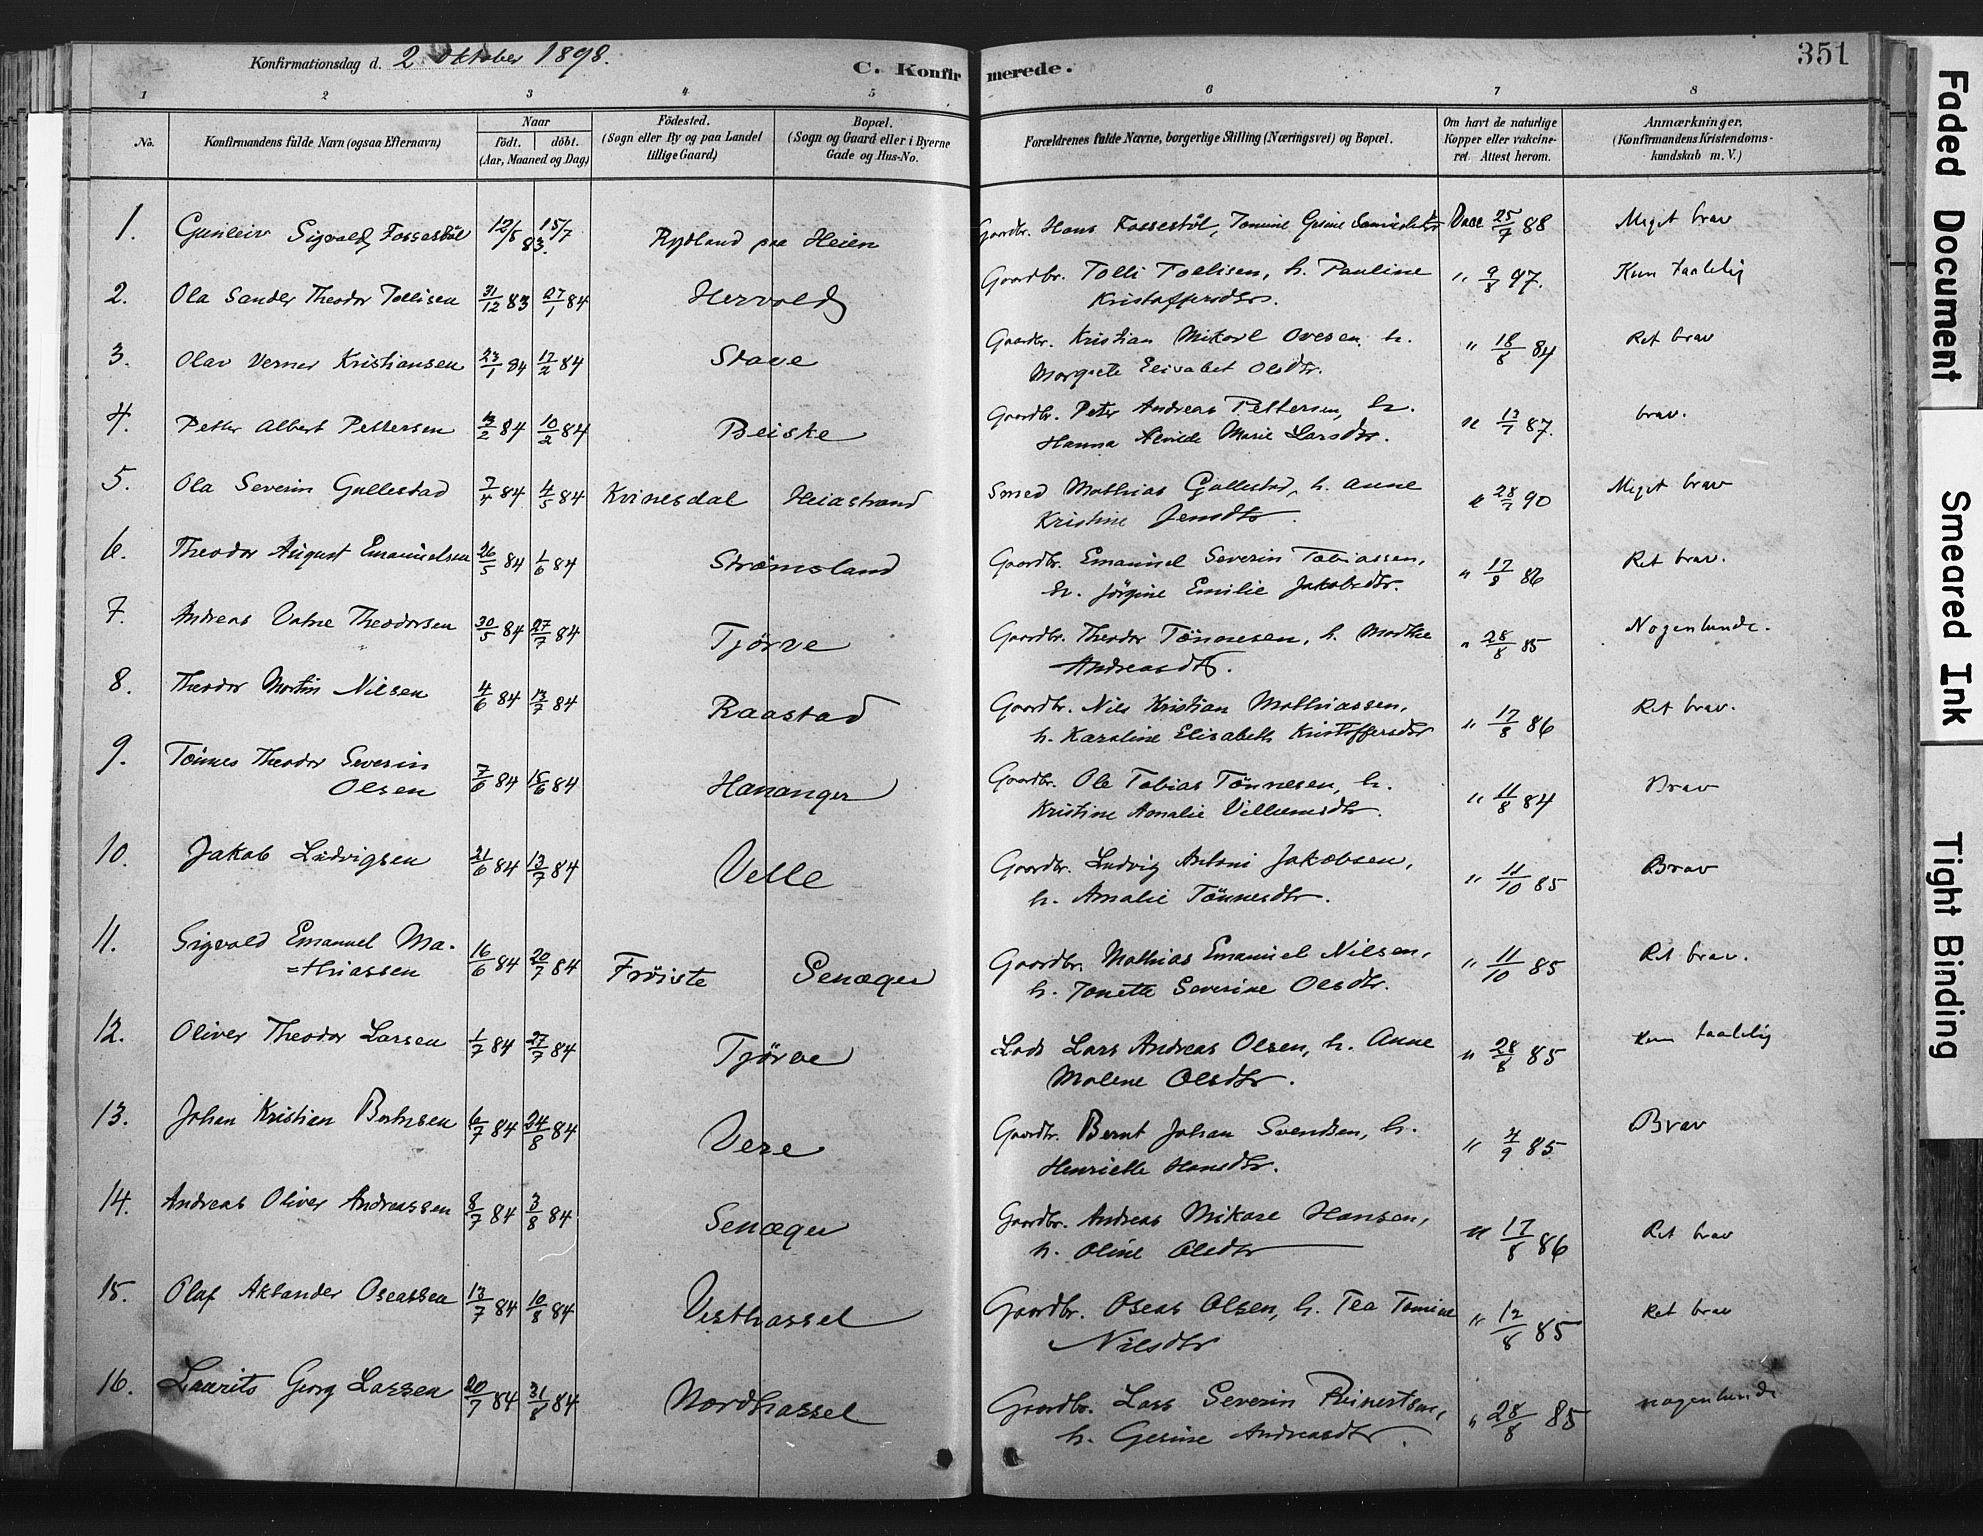 Konfirmationsdag d. 2 Oktober 1898.
C. Konfirmerede.
351
1 2 3 4 5 6 7 8
No.
Konfirmandens fulde Navn (ogsaa Efternavn)
Naar
født. døbt.
(Aar, Maaned og Dag)
Fødested.
(Sogn eller By og paa Landet
tillige Gaard)
Bopæl.
(Sogn og Gaard eller i Byerne
Gade og Hus-No.
Forældrenes fulde Navne, borgerlige Stilling (Næringsvei) og Bopæl.
Om havt de naturlige
Kopper eller vakcine-
ret. Attest herom.
Anmærkninger.
(Konfirmandens Kristendoms-
kundskab m. V.)
1. Gunleiv Sigvald Fossestöl 12/5 83. 15/7 Rydland paa Heien Gaardbr. Hans Fossestöl, Tomine Gurine Vacc. 25/7 88 Meget brav
2. Ola Sander Theodor Tollisen 31/12 83 27/1 84 Hervold Gaardbr. Tolli Tollisen, h. Pauline
Kristoffersdtr. " 9/8 97. Kun taalelig
3. Olav Verner Kristiansen 23/1 84 17/2 84 Stave Gaardbr. Kristian Mikael Ovesen, h.
Margrete Elisabet Olsdtr. " 18/8 84 Ret brav
4. Petter Albert Pettersen 3/2 84 10/2 84 Beiske Gaardbr. Peter Andreas Pettersen, h.
Hanna Alvilde Marie Larsdtr. " 13/7 87. brav.
5. Ola Severin Gullestad 7/4 84 4/5 84 Kvinesdal Heiastrand Smed Mathias Gullestad, h. Anne
Kristine Jensdtr. " 28/7 90 Meget brav
6. Theodor August Emanuelsen 26/5 84 1/6 84 Strömsland Gaardbr. Emanuel Severin Tobiassen,
h. Jörgine Emilie Jakobsdtr. " 17/8 86 Ret brav.
7. Andreas Vatne Theodorsen 30/5 84 27/7 84 Tjörve Gaardbr. Theodor Tönnesen, h. Marthe
Andreasdtr. " 28/8 85 Nogenlunde.
8. Theodor Martin Nilsen 4/6 84 13/7 84 Raastad Gaardbr. Nils Kristian Mathiassen,
h. Karoline Elisabeth Kristoffersdtr " 17/8 86 Ret brav.
9. Tönnes Theodor Severin
Olsen 7/6 84 15/6 84 Hananger Gaardbr. Ole Tobias Tönnesen, h.
Kristine Amalie Villumsdtr. " 11/8 84 Brav
10. Jakob Ludvigsen 21/6 84 13/7 84 Velle Gaardbr. Ludvig Antoni Jakobsen,
h. Amalie Tönnesdtr. " 11/10 85 Brav
11. Sigvald Emanuel Ma-
=thiassen 16/6 84 20/7 84 Fröiste Penæger Gaardbr. Mathias Emanuel Nilsen,
h. Tonette Severine Olsdtr. " 11/10 85 Ret brav.
12. Oliver Theodor Larsen 1/7 84 27/7 84 Tjörve Lods Lars Andreas Olsen, h. Anne
Malene Olsdtr. " 28/8 85 Kun taalelig
13. Johan Kristian Berntsen 6/7 84 24/8 84 Vere Gaardbr. Bernt Johan Svendsen, h.
Henriette Hansdtr. " 4/9 85 Brav
14. Andreas Oliver Andreassen 8/7 84 3/8 84 Penæger Gaardbr. Andreas Mikael Hansen,
h. Oline Olsdtr " 17/8 86 Ret brav
15. Olaf Aksander Oseassen 13/7 84 10/8 84 Vesthassel Gaardbr. Oseas Olsen, h. Tea Tomine
Nilsdtr " 12/8 85 Ret brav
16. Laurits Georg Larsen 20/7 84 31/8 84 Nordhassel Gaardbr. Lars Severin Reinertsen,
h. Gesine Andreasdtr. " 28/8 85 nogenlunde
Faded Document
Smeared Ink
Tight Binding